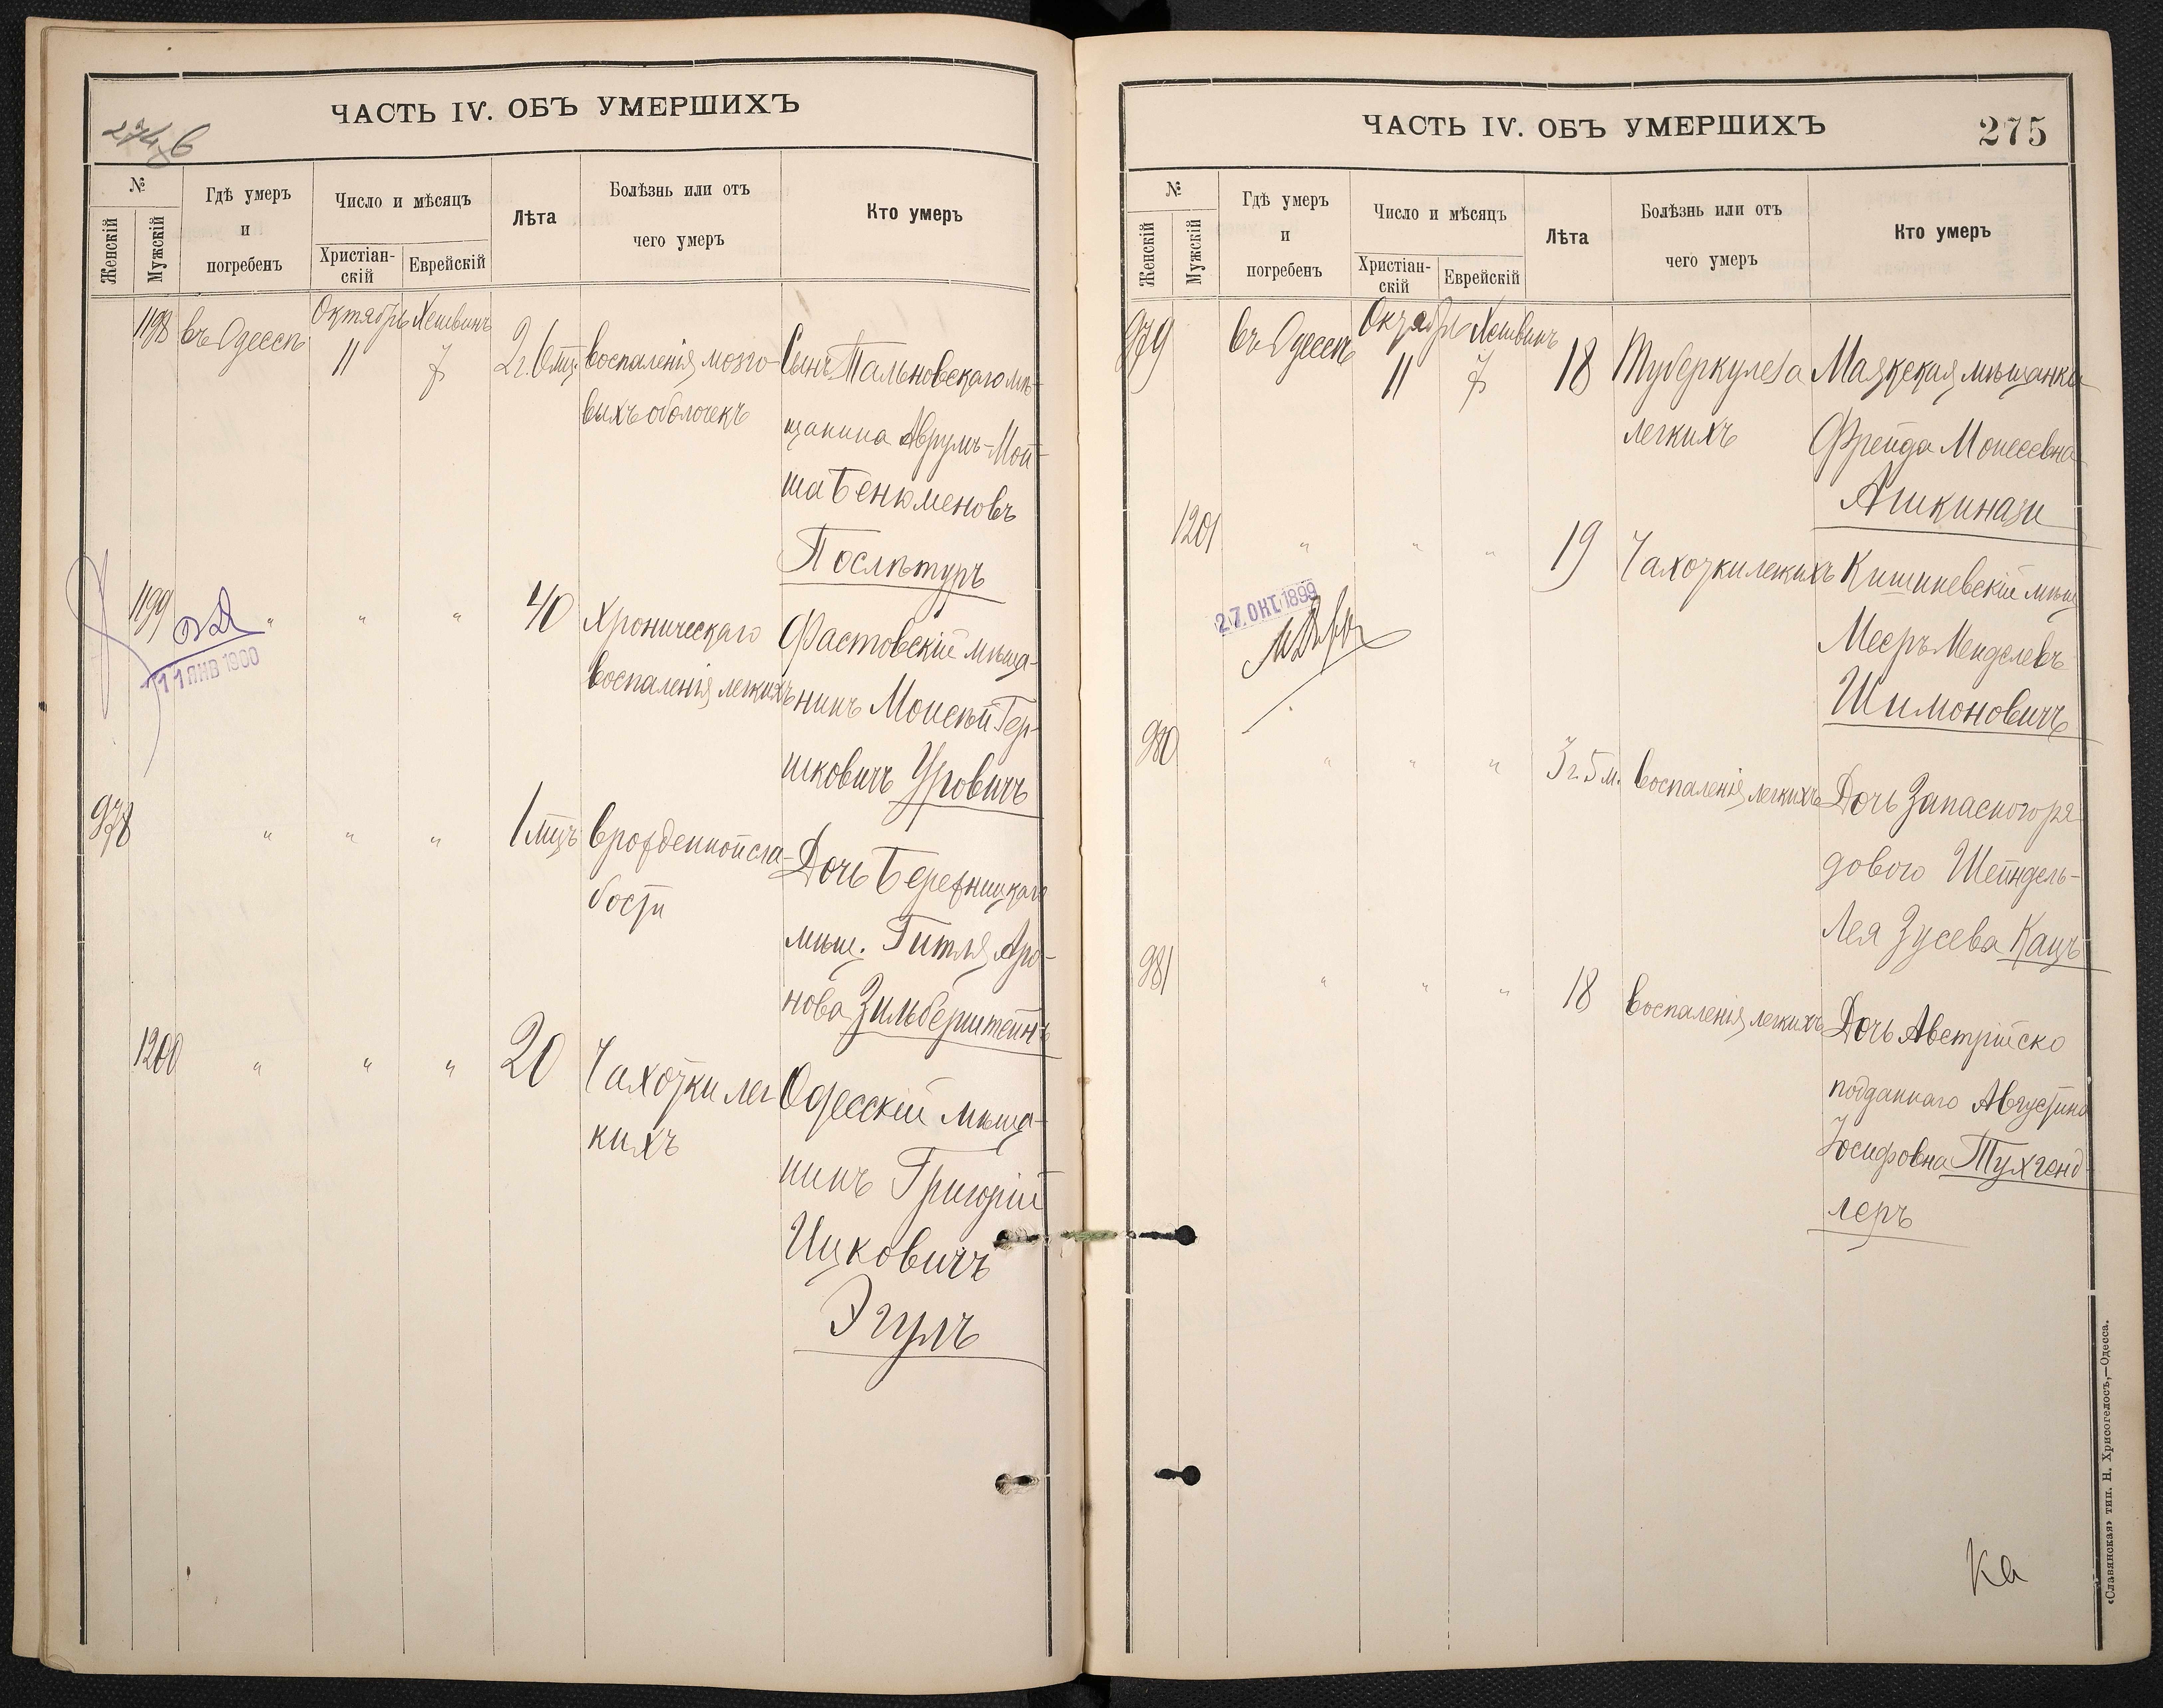 274 б
ЧАСТЬ IV. ОБЪ УМЕРШИХЪ
№
Женскій
Мужскій
Гдѣ умеръ
и
погребенъ
Число и мѣсяцъ
Христіан-
скій
Еврейскій
Лѣта
Болѣзнь или отъ
чего умеръ
Кто умеръ
1198
въ Одессѣ
Октябрь
11
Хешвинъ
7
2 г. 6 мц.
воспаленія мозго-
выхъ оболочекъ
Сынъ Тальновскаго мѣ-
щанина Аврумъ-Мой-
ша Бенюменовъ
Послѣтуръ
1199
11 ЯНВ 1900
"
"
"
40
Хроническаго
воспаленія легкихъ
Фастовскій мѣща-
нинъ Моисѣй Гер-
шковичъ Уровичъ
978
"
"
"
1 мцъ
врожденной сла-
бости
Дочь Березницкаго
мѣщ. Гитля Аро-
нова Зильберштейнъ
1200
"
"
"
20
Чахотки лег
кихъ
Одесскій мѣща-
нинъ Григорій
Ицковичъ
Эгулъ
ЧАСТЬ IV. ОБЪ УМЕРШИХЪ
275
№
Женскій
Мужскій
Гдѣ умеръ
и
погребенъ
Число и мѣсяцъ
Христіан-
скій
Еврейскій
Лѣта
Болѣзнь или отъ
чего умеръ
Кто умеръ
979
въ Одессѣ
Октябрь
11
Хешвинъ
7
18
Туберкулеза
легкихъ
Маякская мѣщанка
Фрейда Моисеевна
Ашкинази
1201
27 ОКТ 1899
"
"
"
19
Чахотки легкихъ
Кишиневскій мѣщ
Мееръ Менделевъ
Шимоновичъ
980
"
"
"
3 г. 5 м.
воспаленія легкихъ
Дочь Запасного ря
дового Шейндель-
Лея Зусева Кацъ
981
"
"
"
18
воспаленія легкихъ
Дочь Австрійско
подданнаго Августина
Іосифовна Тухгенд
леръ
Ка
«Славянская» тип. Н. Хрисогелосъ,—Одесса.